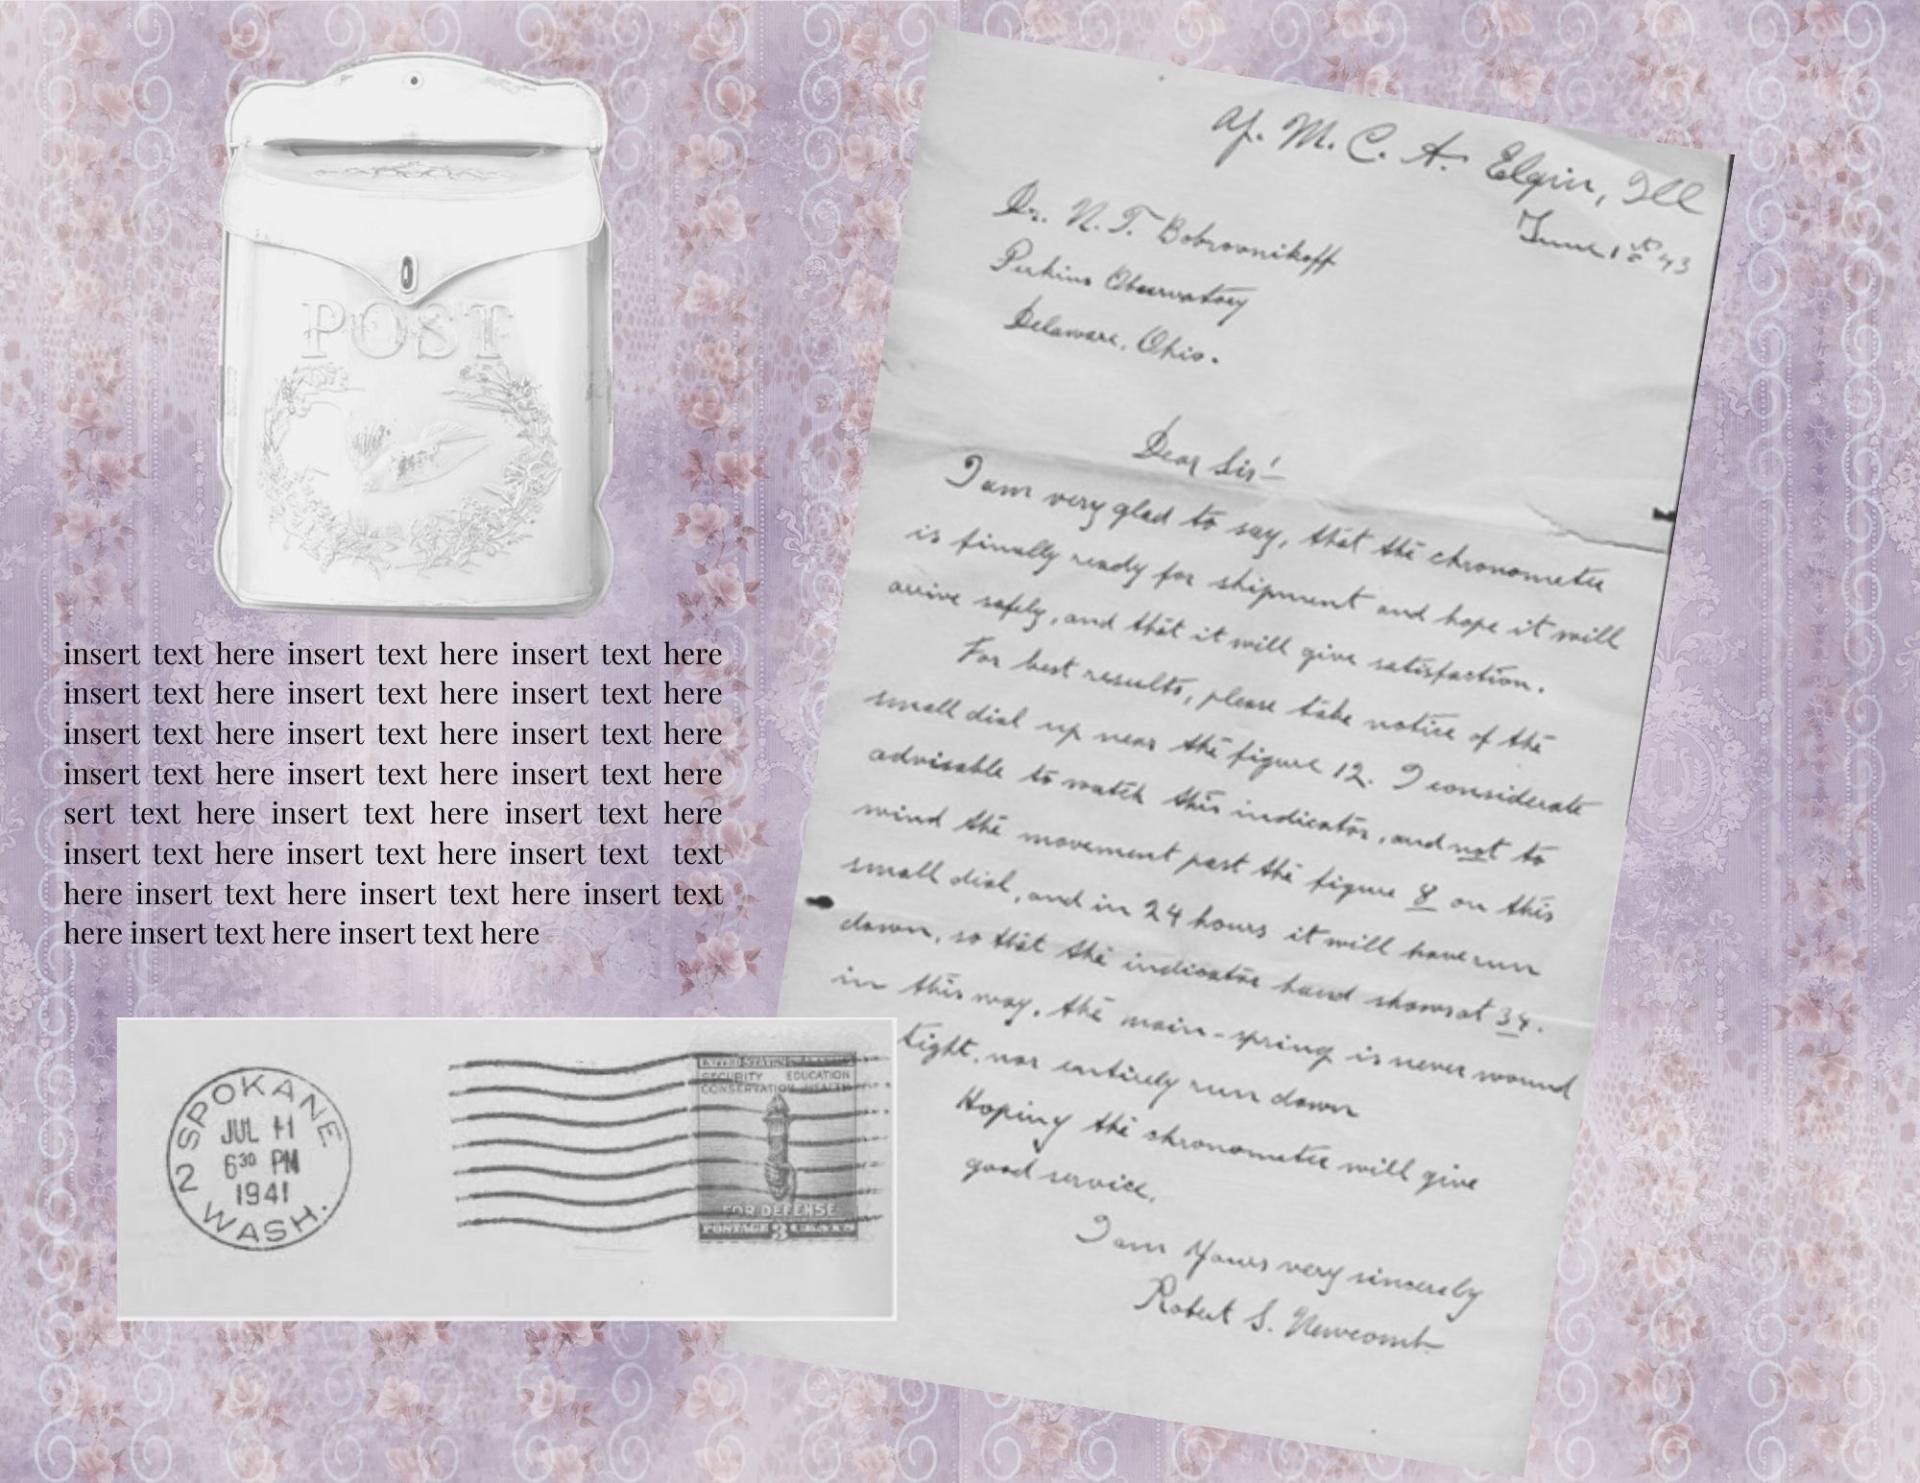 POST
insert text here insert text here insert text here
insert text here insert text here insert text here
insert text here insert text here insert text here
insert text here insert text here insert text here
sert text here insert text here insert text here
insert text here insert text here insert text text
here insert text here insert text here insert text
here insert text here insert text here
SPOKANE
JUL 11
6 30 PM
1941
2
WASH.
UNITED STATES OF AMERICA
SECURITY EDUCATION
CONSERVATION HEALTH
FOR DEFENSE
POSTAGE 3 CENTS
Y. M. C. A. Elgin, Ill
June 1st 43
Dr. N. T. Bobrovnikoff
Perkins Observatory
Delaware, Ohio.
Dear Sir!—
I am very glad to say, that the chronometer
is finally ready for shipment and hope it will
arrive safely, and that it will give satisfaction.
For best results, please take notice of the
small dial up near the figure 12. I considerate
advisable to watch this indicator, and not to
wind the movement past the figure 8 on this
small dial, and in 24 hours it will have run
down, so that the indicator hand shows at 34.
in this way, the main-spring is never wound
tight, nor entirely run down
Hoping the chronometer will give
good service.
I am Yours very sincerely
Robert S. Newcomb